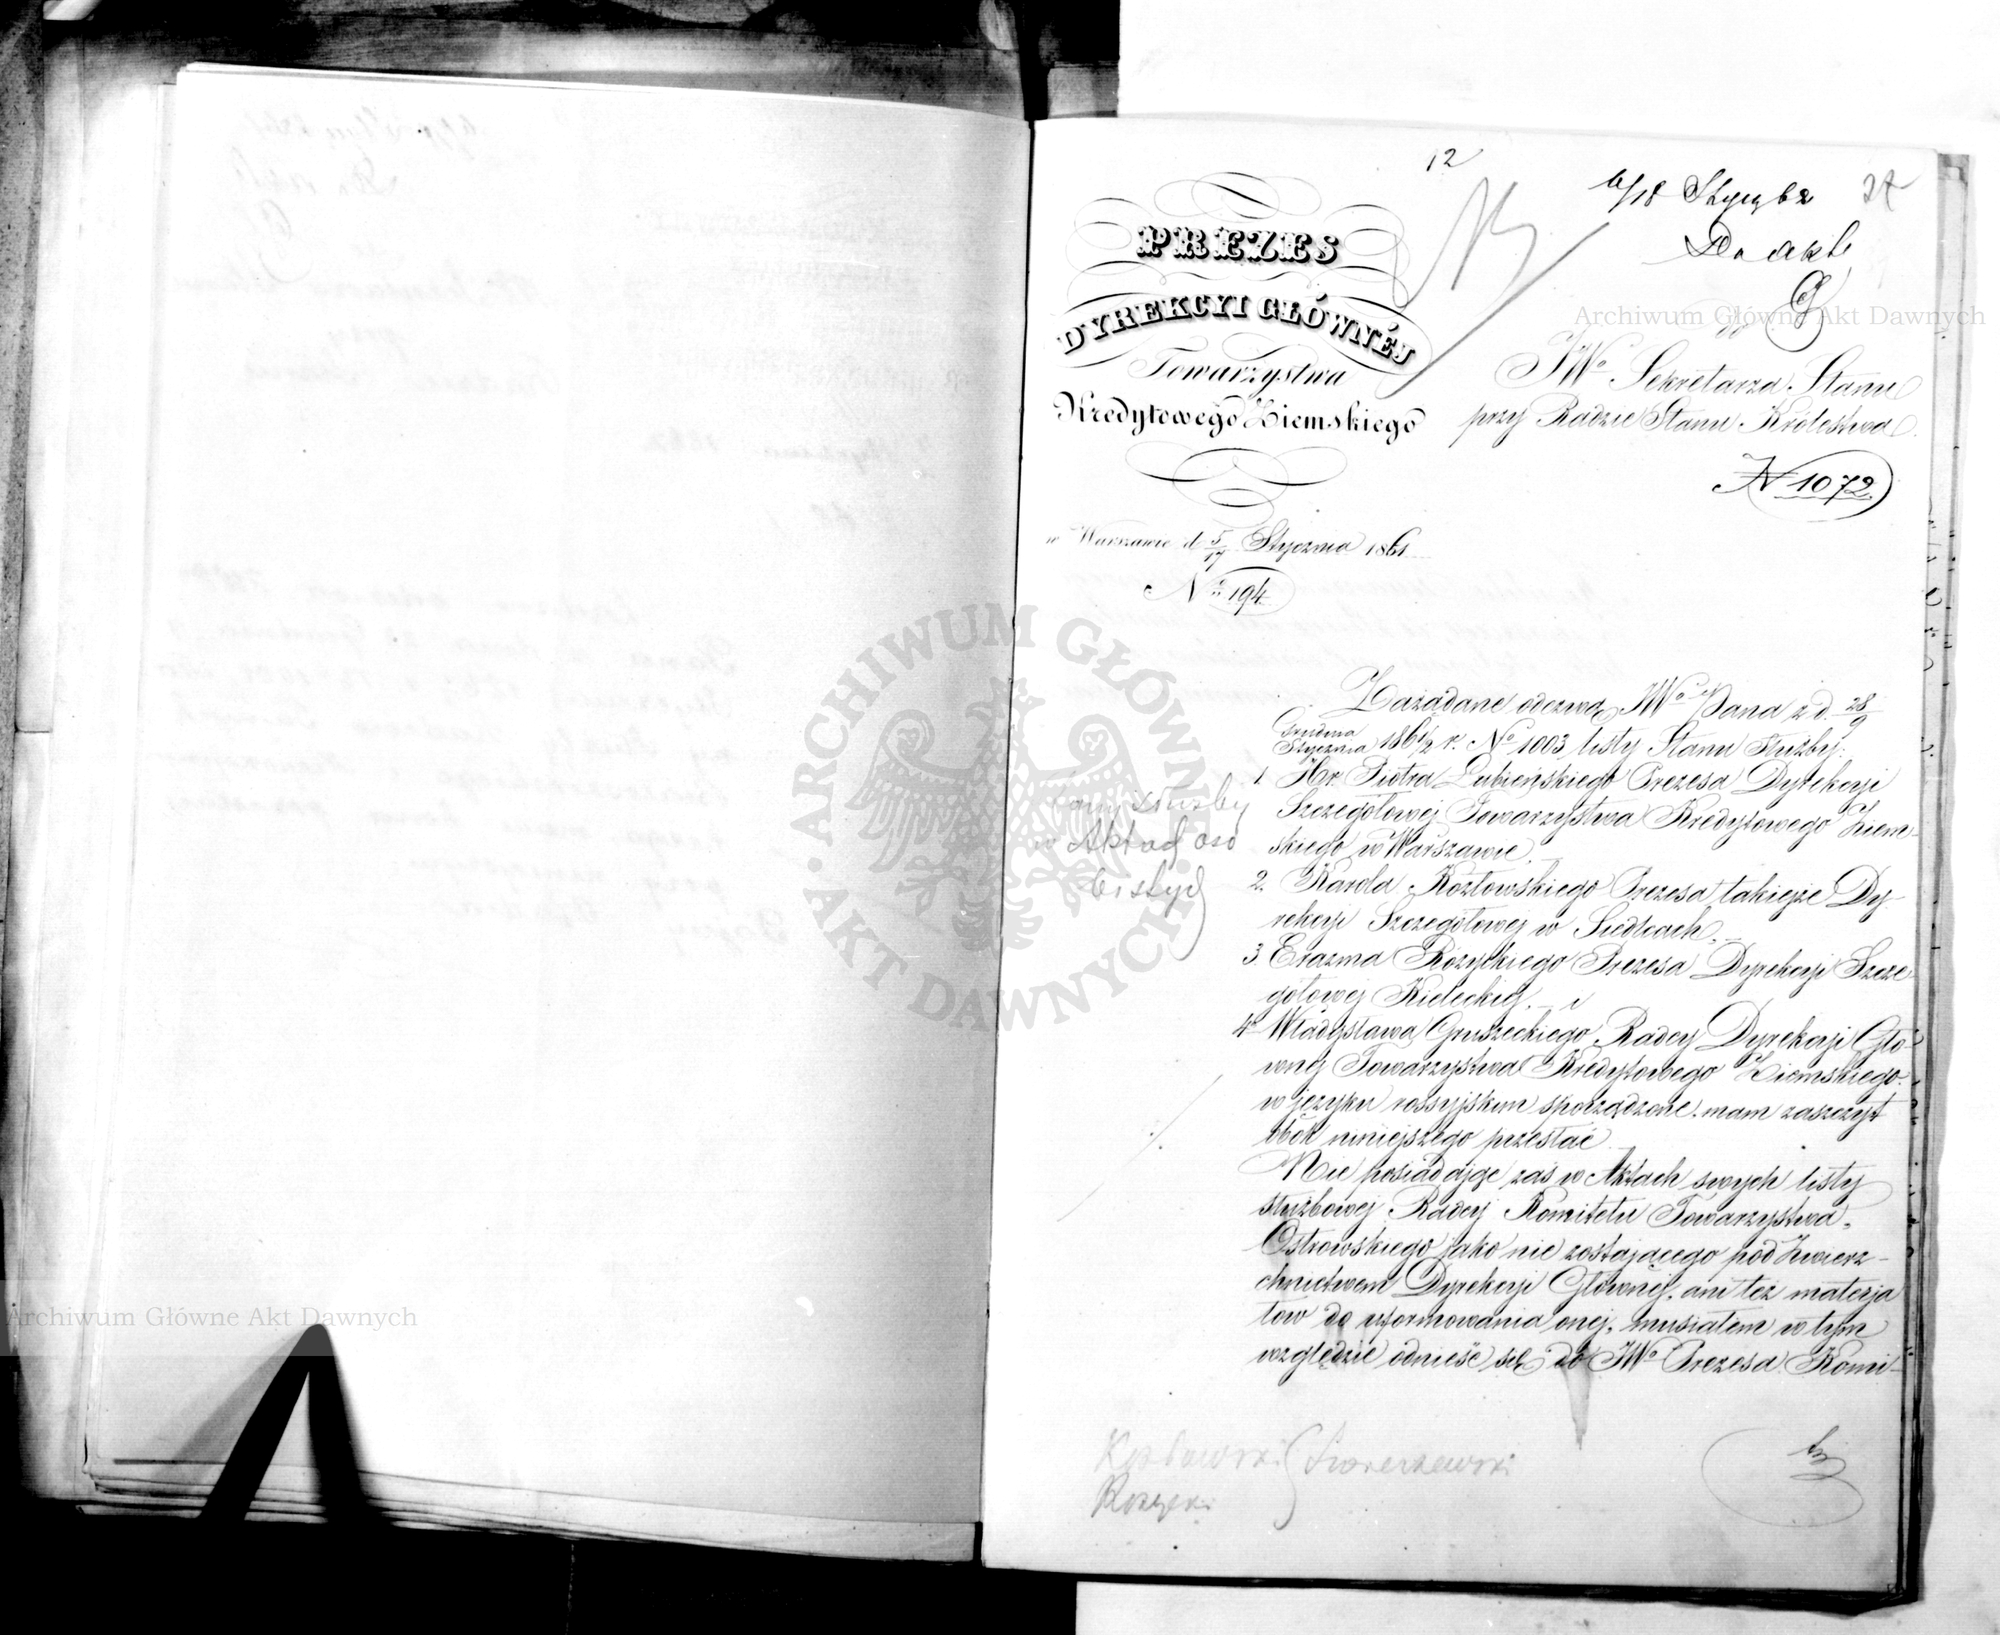 12
6/18 Stycz 62
Do akt
PREZES
DYREKCYI GŁÓWNÉJ
Towarzystwa
Kredytowego Ziemskiego
JWo Sekretarza Stanu
przy Radzie Stanu Królestwa
N 1072
w Warszawie d 5/17 Stycznia 1861
No 194
Zażądane odezwą JWo Pana z d. 28/9
Grudnia/Stycznia 1861/2 r. No 1003 listy Stanu Służby:
1. Hr. Piotra Łubieńskiego Prezesa Dyrekcyi
Szczegółowej Towarzystwa Kredytowego Ziem-
skiego w Warszawie.
2. Karola Kozłowskiego Prezesa takiejże Dy-
rekcyi Szczegółowej w Siedlcach.
3. Erazma Różyckiego Prezesa Dyrekcyi Szcze
gółowej Kieleckiej. i
4. Władysława Gruszeckiego Radcy Dyrekcyi Głó-
wnej Towarzystwa Kredytowego Ziemskiego
w języku rossyjskim sporządzone, mam zaszczyt
obok niniejszego przesłać.
Nie posiadając zaś w Aktach swych listy
służbowej Radcy Komitetu Towarzystwa
Ostrowskiego jako nie zostającego pod Zwierz-
chnictwem Dyrekcyi Głównej, ani też materja
łów do uformowania onej, musiałem w tym
względzie odnieść się do JWo Prezesa Komi-
służby
w Aktach oso
bistych
Kozłowski
Rożycki
ARCHIWUM GŁÓWNE AKT DAWNYCH
Archiwum Główne Akt Dawnych
Archiwum Główne Akt Dawnych